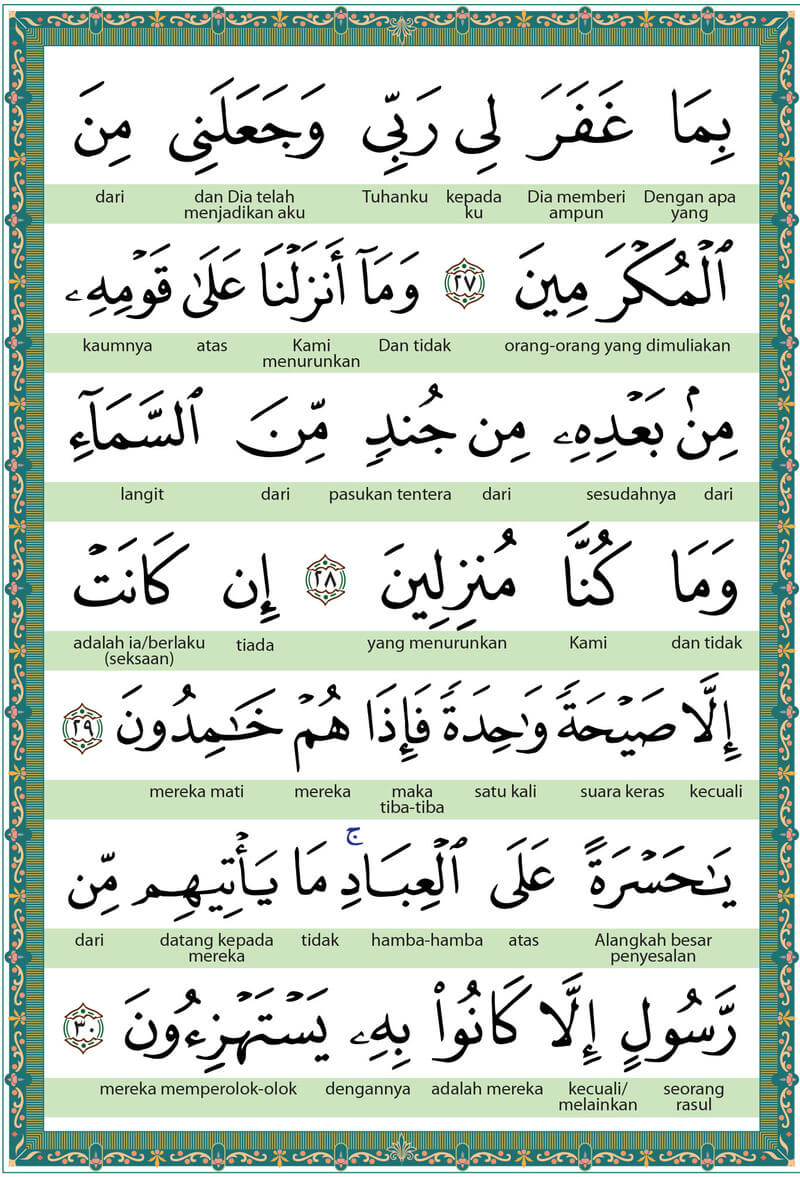 بِمَا غَفَرَ لِى رَبِّى وَجَعَلَنِى مِنَ
Dengan apa yang Dia memberi ampun kepada ku Tuhanku dan Dia telah menjadikan aku dari
ٱلْمُكْرَمِينَ ٢٧ وَمَآ أَنزَلْنَا عَلَىٰ قَوْمِهِۦ
orang-orang yang dimuliakan Dan tidak Kami menurunkan atas kaumnya
مِنۢ بَعْدِهِۦ مِن جُندٍ مِّنَ ٱلسَّمَآءِ
dari sesudahnya dari pasukan tentera dari langit
وَمَا كُنَّا مُنزِلِينَ ٢٨ إِن كَانَتْ
dan tidak Kami yang menurunkan tiada adalah ia/berlaku (seksaan)
إِلَّا صَيْحَةً وَٰحِدَةً فَإِذَا هُمْ خَـٰمِدُونَ ٢٩
kecuali suara keras satu kali maka tiba-tiba mereka mereka mati
يَـٰحَسْرَةً عَلَى ٱلْعِبَادِ ۚ مَا يَأْتِيهِم مِّن
Alangkah besar penyesalan atas hamba-hamba tidak datang kepada mereka dari
رَّسُولٍ إِلَّا كَانُوا۟ بِهِۦ يَسْتَهْزِءُونَ ٣٠
seorang rasul kecuali/ melainkan adalah mereka dengannya mereka memperolok-olok